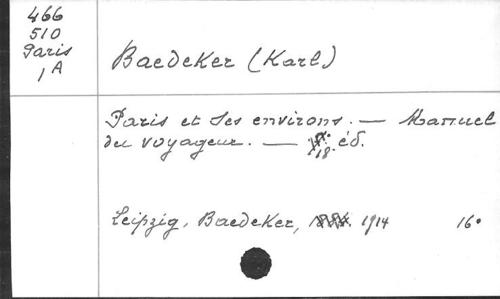 466
510
Paris
1A
Baedeker (Karl)
Paris et ses environs. — Manuel
du voyageur. — 18. éd.
Leipzig, Baedeker, 1914 16°